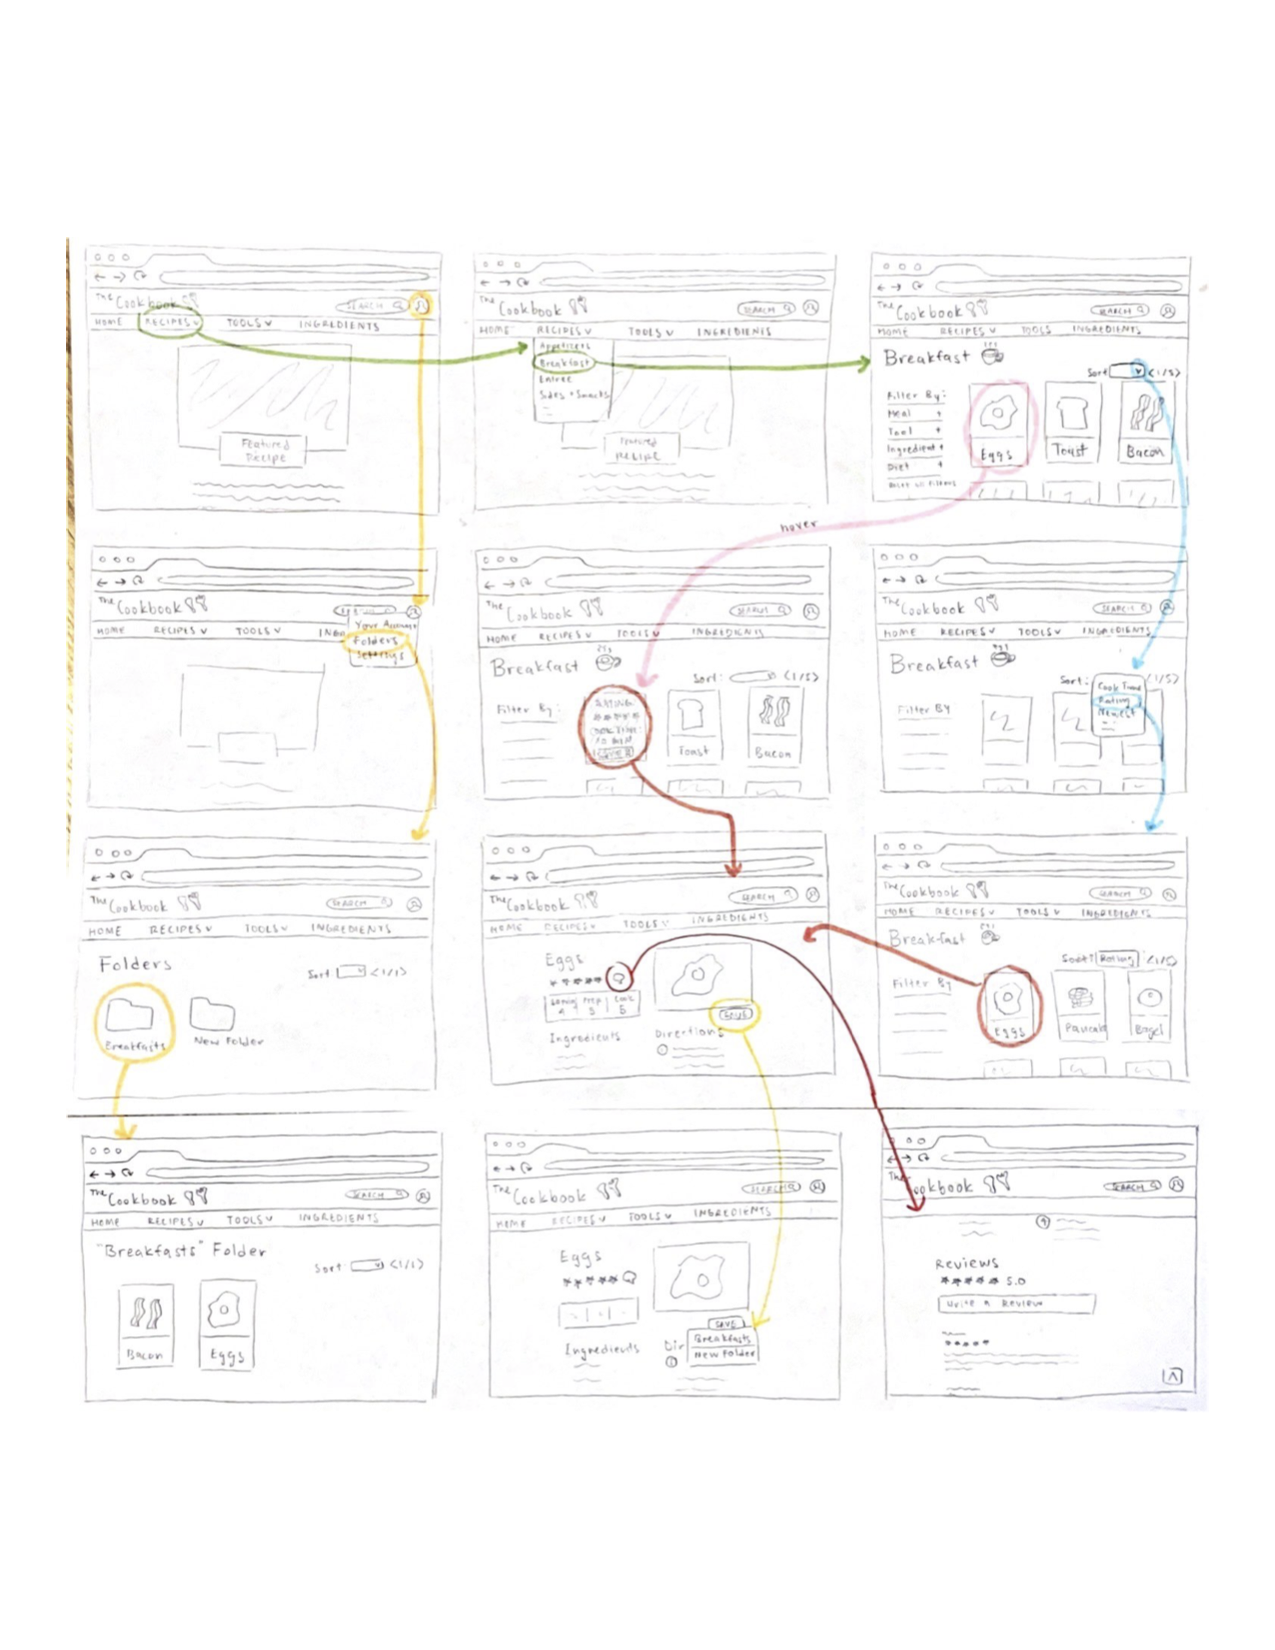 The Cookbook
SEARCH
HOME RECIPES TOOLS INGREDIENTS
Featured
Recipe
The Cookbook
SEARCH
HOME RECIPES TOOLS INGREDIENTS
Appetizers
Breakfast
Entree
Sides + Snacks
Featured
Recipe
The Cookbook
SEARCH
HOME RECIPES TOOLS INGREDIENTS
Breakfast
Sort <1/5>
Filter By:
Meal +
Tool +
Ingredient +
Diet +
Reset all filters
Eggs
Toast
Bacon
hover
The Cookbook
HOME RECIPES TOOLS
Your Account
Folders
Settings
The Cookbook
SEARCH
HOME RECIPES TOOLS INGREDIENTS
Breakfast
Sort: <1/5>
Filter By:
RATING:
COOK TIME:
10 MIN
SAVE
Toast
Bacon
The Cookbook
SEARCH
HOME RECIPES TOOLS INGREDIENTS
Breakfast
Sort: <1/5>
Filter By
Cook Time
Rating
Newest
The Cookbook
SEARCH
HOME RECIPES TOOLS INGREDIENTS
Folders
Sort <1/1>
Breakfasts
New Folder
The Cookbook
SEARCH
HOME RECIPES TOOLS INGREDIENTS
Eggs
Prep Cook
5 5
SAVE
Ingredients
Directions
1
The Cookbook
SEARCH
HOME RECIPES TOOLS INGREDIENTS
Breakfast
Sort: Rating <1/5>
Filter By
Eggs
Pancake
Bagel
The Cookbook
SEARCH
HOME RECIPES TOOLS INGREDIENTS
"Breakfasts" Folder
Sort <1/1>
Bacon
Eggs
The Cookbook
SEARCH
HOME RECIPES TOOLS INGREDIENTS
Eggs
SAVE
Breakfasts
New Folder
Ingredients
Dir
1
The Cookbook
SEARCH
Reviews
5.0
Write a Review